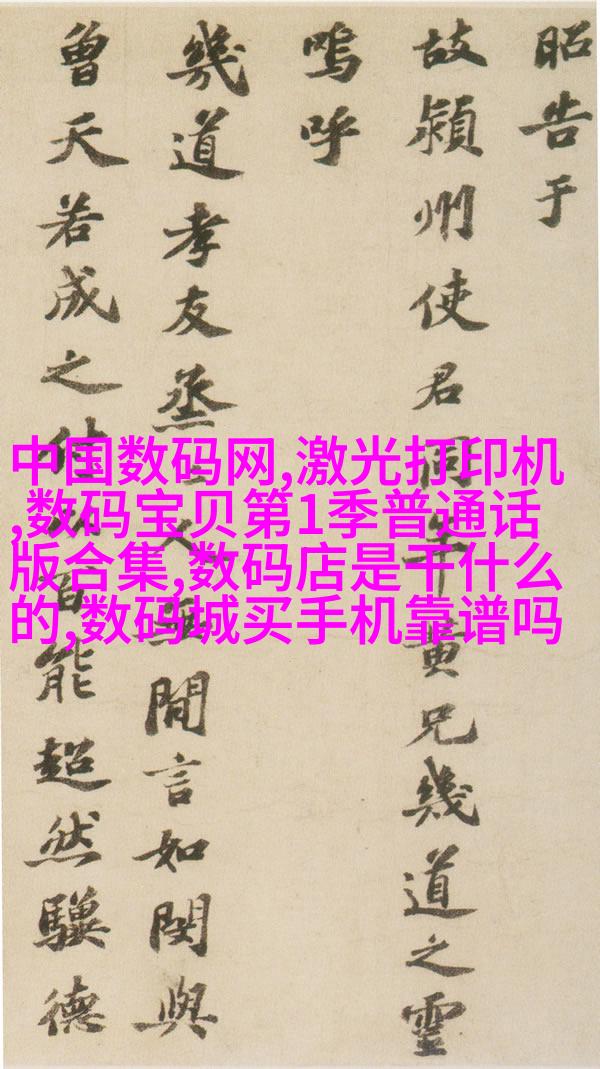 昭告于
故潁州使君同年黄兄幾道之靈
嗚呼
幾道孝友烝人無間言如閔與
曾天若成之付百能超然驥德
中国数码网,激光打印机
,数码宝贝第1季普通话
版合集,数码店是干什么
的,数码城买手机靠谱吗